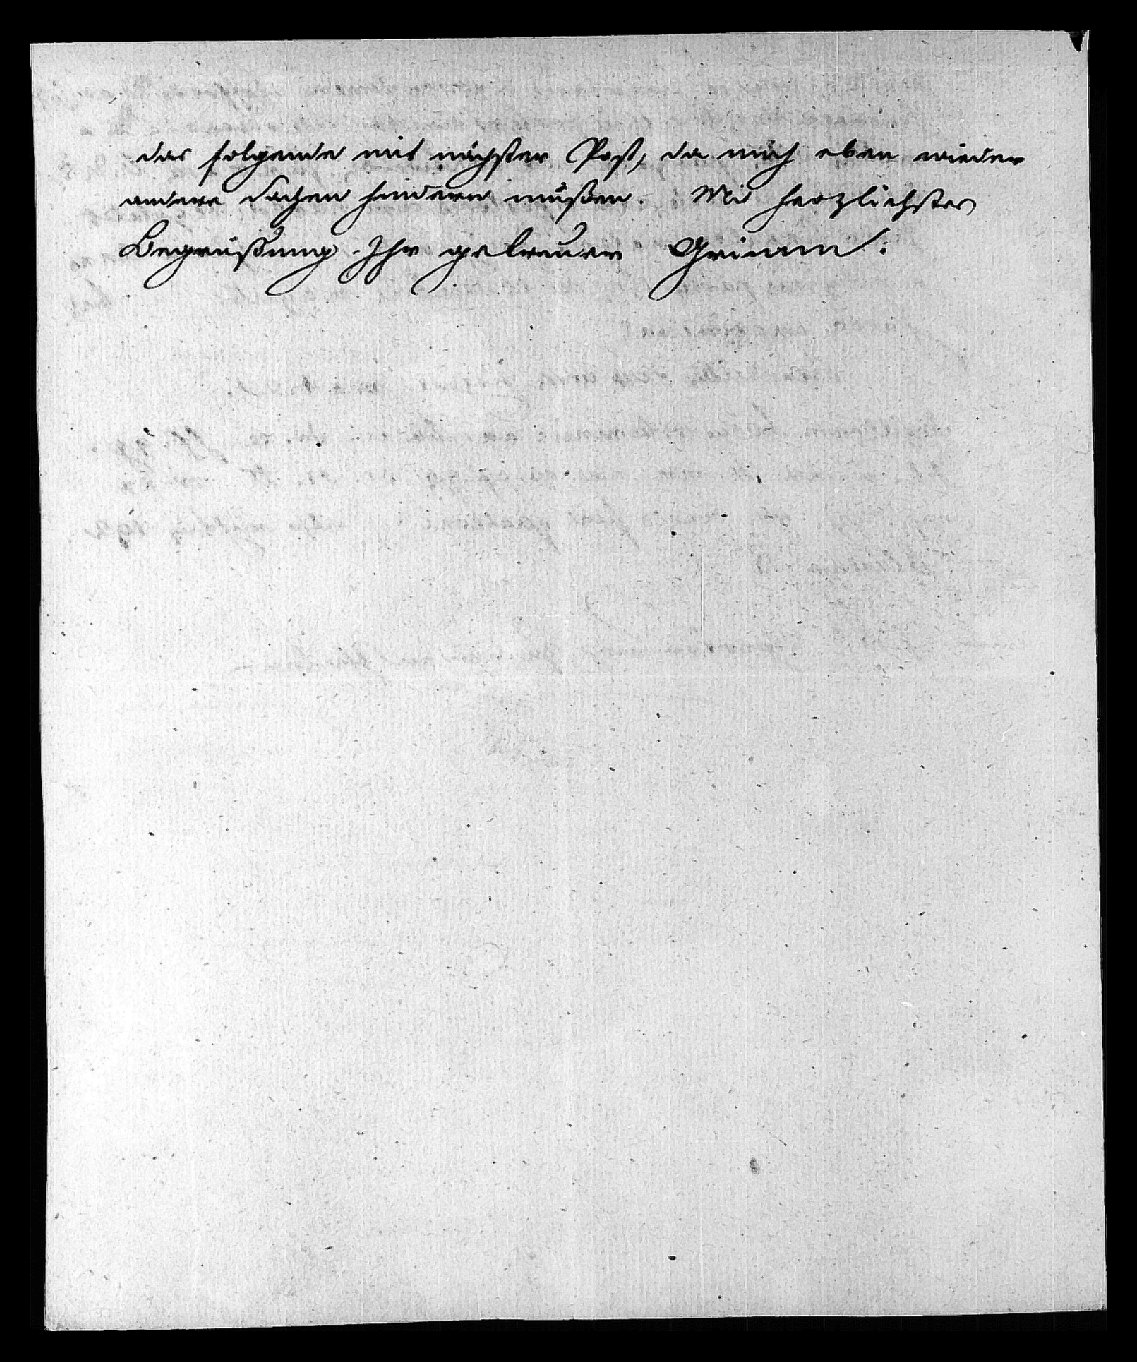 das folgende mit nächster Post, da mich eben wieder
andere Sachen hindern müßen. Mit herzlichster
Begrüßung Ihr getreuer Grimm.